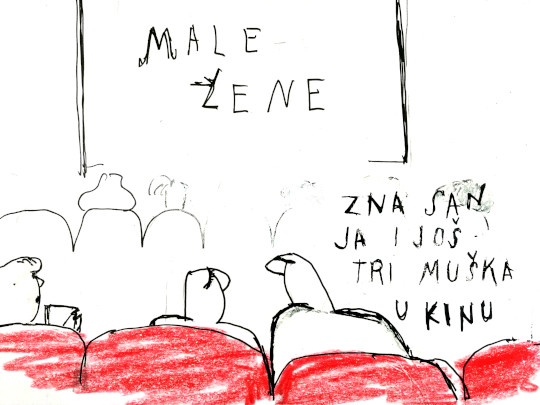 MALE
ŽENE
ZNA SAN
JA I JOŠ
TRI MUŠKA
U KINU